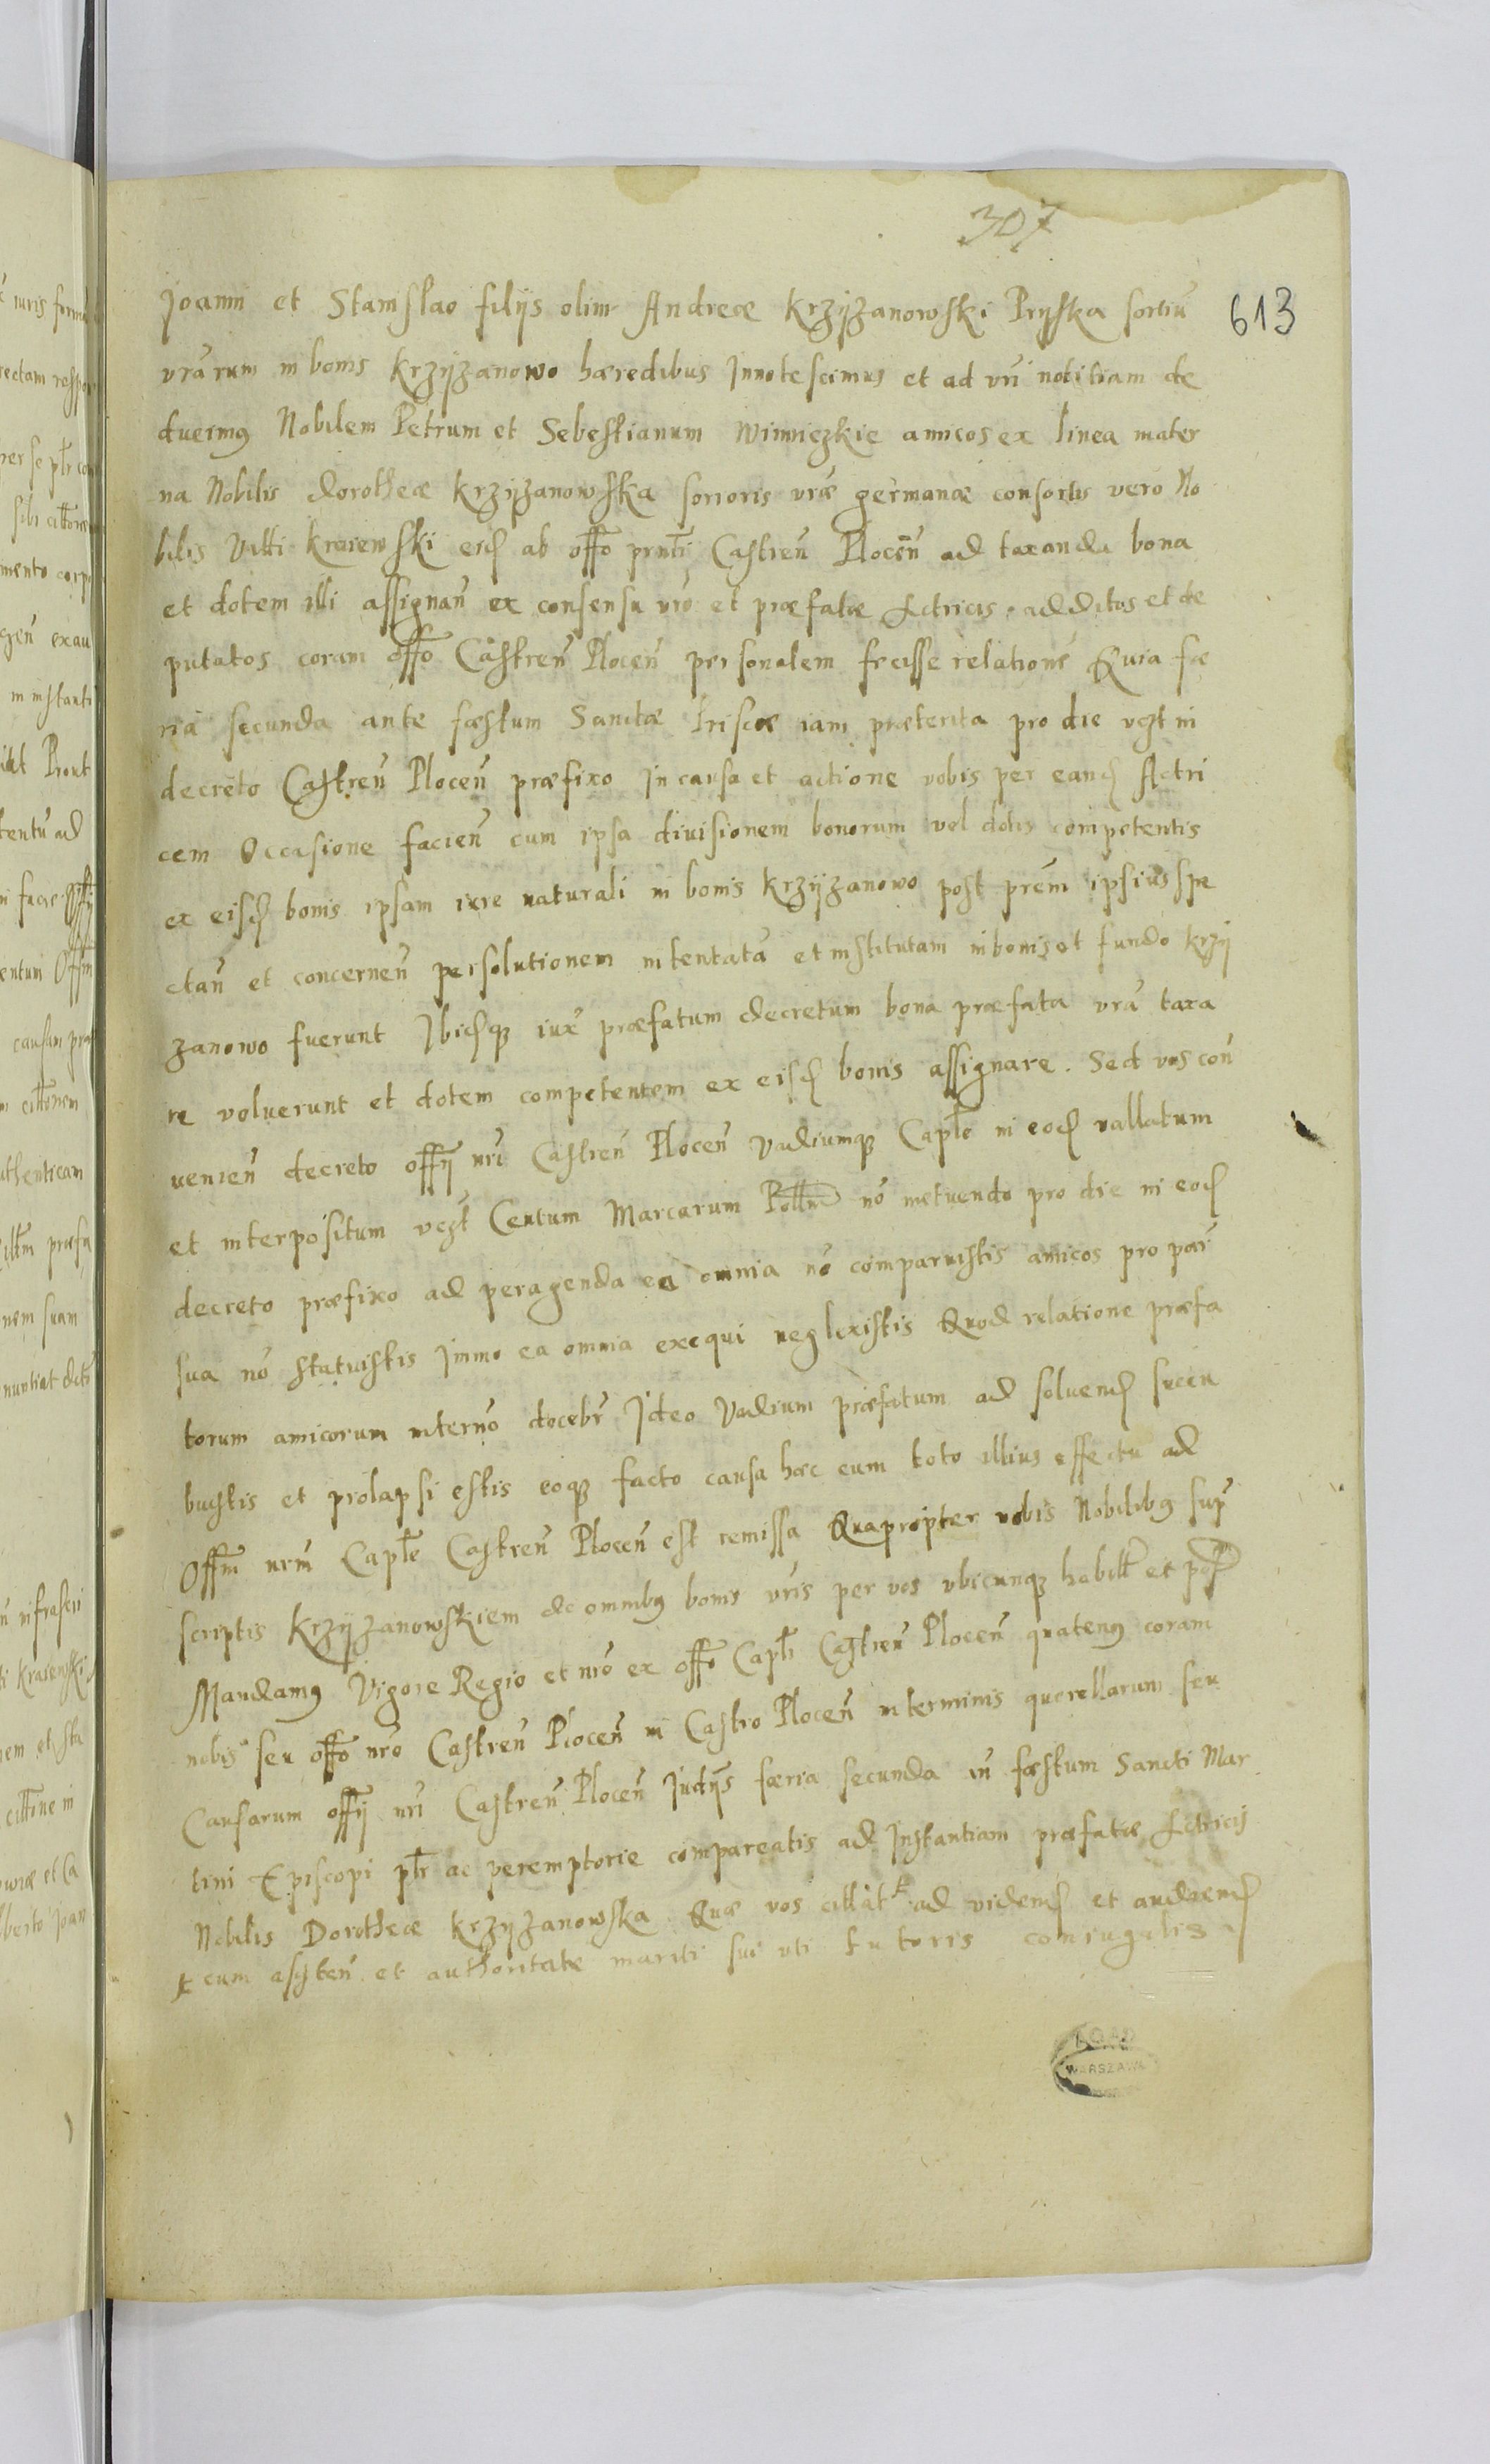 307
613
Joanni et Stanislao filijs olim Andreæ Krzyżanowski Pryska sortiũ
vrãrum in bonis Krzyżanowo hæredibus Innotescimus et ad vrĩ notitiam de
ducimus Nobilem Petrum et Sebestianum Winniczkie amicos ex linea mater
na Nobilis Dorotheæ Krzyżanowska sororis vræ germanæ consortis vero No
bilis Vitti Kraiewski eisd ab offo prnti Castren Plocen ad taxanda bona
et dotem illi assignan ex consensu vro et præfatæ Actricis additos et de
putatos coram offo Castren Plocen personalem fecisse relationẽ Quia fæ
ria secunda ante fæstum Sanctæ Priscæ iam præterita pro die vigt in
decreto Castren Plocen præfixo in causa et actione vobis per eand Actri
cem Occasione facien cum ipsa diuisionem bonorum vel dotis competentis
ex eisd bonis ipsam iure naturali in bonis Krzyżanowo post prem ipsius spe
ctan et concernen persolutionem intentatã et institutam in bonis et fundo Krzy
zanowo fuerunt Ibidqz iux præfatum decretum bona præfata vrã taxa
re voluerunt et dotem competentem ex eisd bonis assignare. Sed vos con
uenien decreto offij nri Castren Plocen Vadiumqz Caple in eod vallatum
et interpositum vigt Centum Marcarum Polln nõ metuendo pro die in eod
decreto præfixo ad peragenda ea omnia nõ comparuistis amicos pro par
sua nõ statuistis Immo ea omnia exequi neglexistis Quod relatione præfa
torum amicorum docebr Ideo Vadium præfatum ad soluend succu
buistis et prolapsi estis eoqz facto causa hæc cum toto illius effectu ad
Offm nrm Caple Castren Plocen est remissa Quapropter vobis Nobilibus sup
scriptis Krzyżanowskiem de omnibus bonis vris per vos vbicunqz habitt et poss
Mandamus Vigore Regio et nro ex offo Capli Castren Plocen quatenus coram
nobis seu offo nro Castren Plocen in Castro Plocen in terminis querellarum seu
Causarum offij nri Castren Plocen Judijs færia secunda in fæstum Sancti Mar
tini Episcopi ptr ac peremptorie compareatis ad Instantiam præfatæ Actricis
Nobilis Dorotheæ Krzyżanowska Quæ vos cittat ad vidend et audiend
cum asisten et authoritate mariti sui uti tutoris coniugalis
AGAD
WARSZAWA